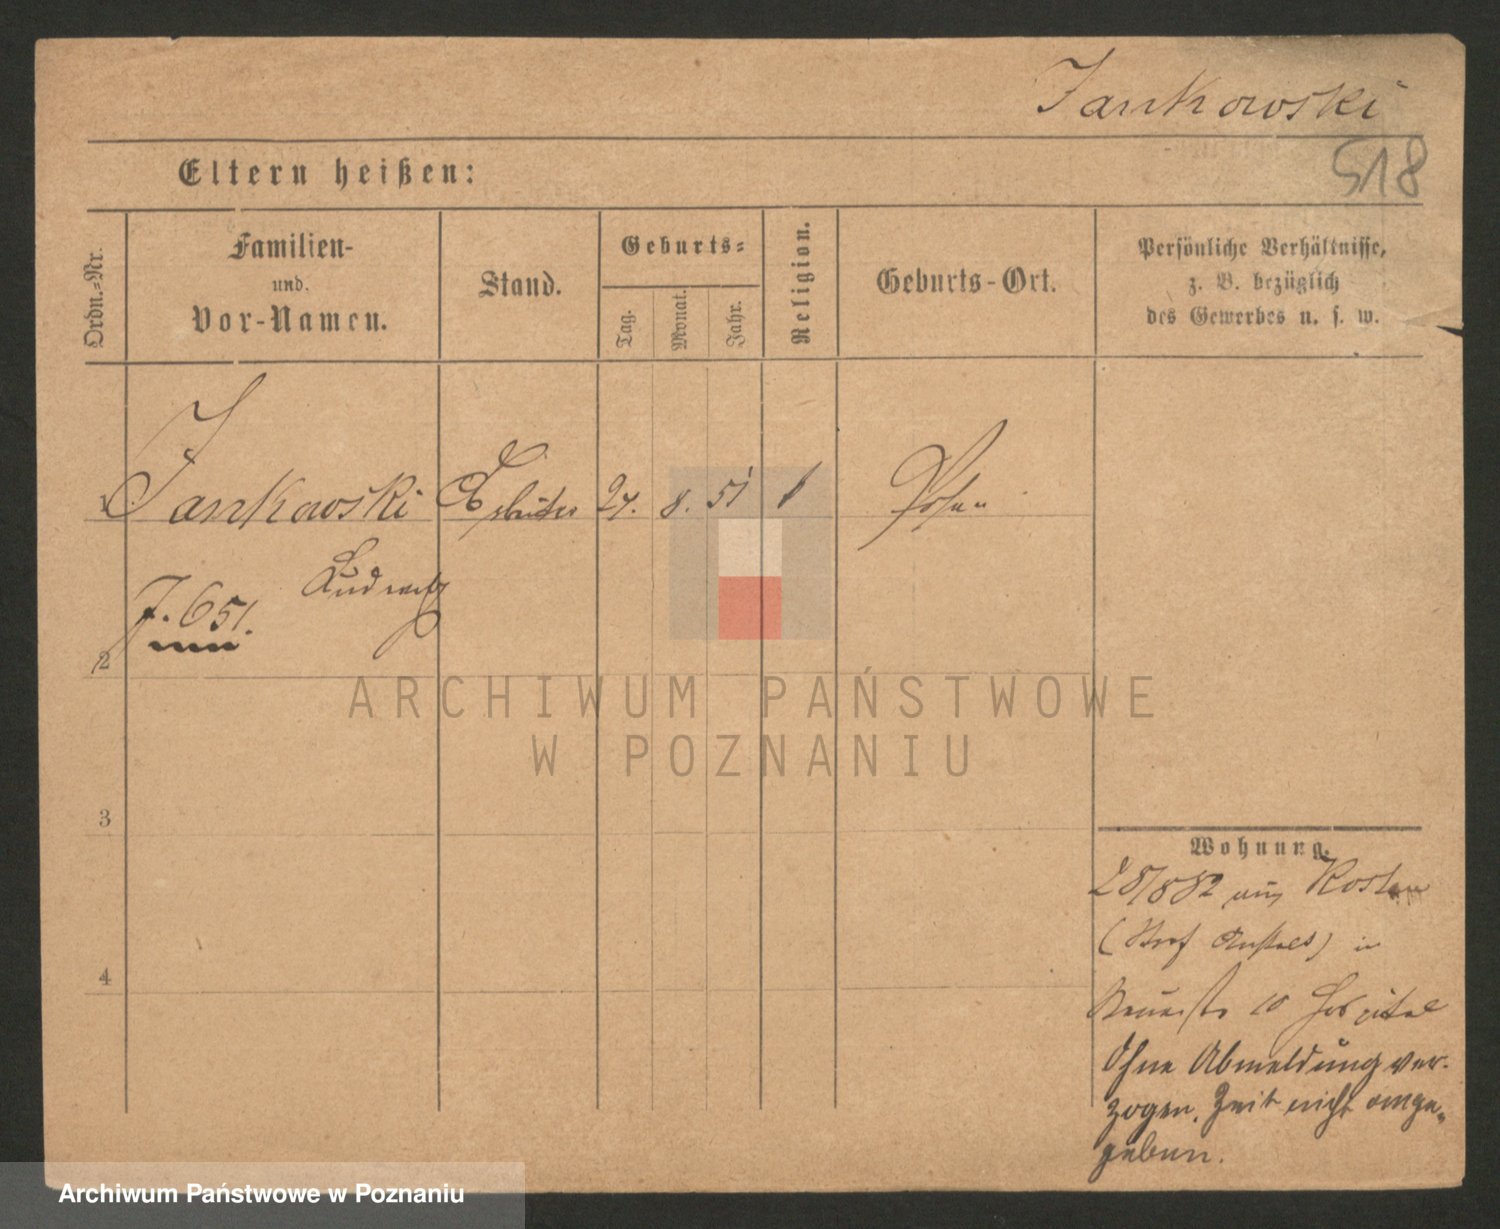 Jankowski
518
Eltern heißen:
Ordn.-Nr.
Familien-
und
Vor-Namen.
Stand.
Geburts-
Tag.
Monat.
Jahr.
Religion.
Geburts-Ort.
Persönliche Verhältnisse,
z. B. bezüglich
des Gewerbes u. s. w.
1 Jankowski Arbeiter 8. 51 Posen
Ludwig
J. 651.
2
ARCHIWUM PAŃSTWOWE
W POZNANIU
3
Wohnung.
28/8 82 aus Kosten
(Straf Anstalt) in
10 Hospital
4
Ohne Abmeldung ver-
zogen. Zeit nicht ange-
geben.
Archiwum Państwowe w Poznaniu